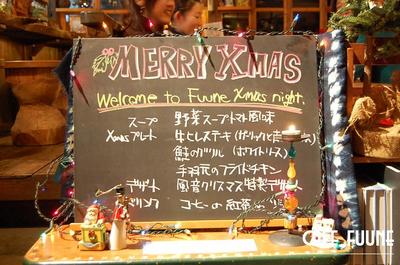 MERRY XMAS
Welcome to Fuune Xmas night.
スープ 野菜スープトマト風味
Xmasプレート 牛ヒレステキ
鮭のグリル(ホワイトソース)
手羽元のフライドチキン
デザート 風音クリスマス特製デザート
ドリンク コーヒー 紅茶
CAFE FUUNE